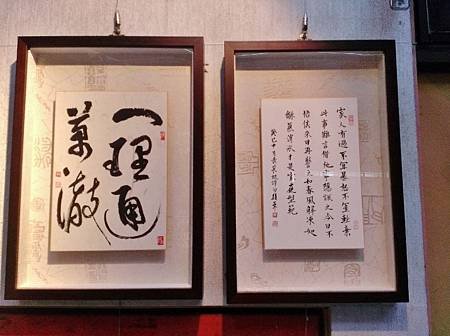 一理通
萬澈
家人有過不宜暴怒不宜輕棄
此事難言借他事隱諷之今日不
悟俟來日再警之如春風解凍如
龢氣消冰才是家庭型範
癸巳十月 菜根譚句